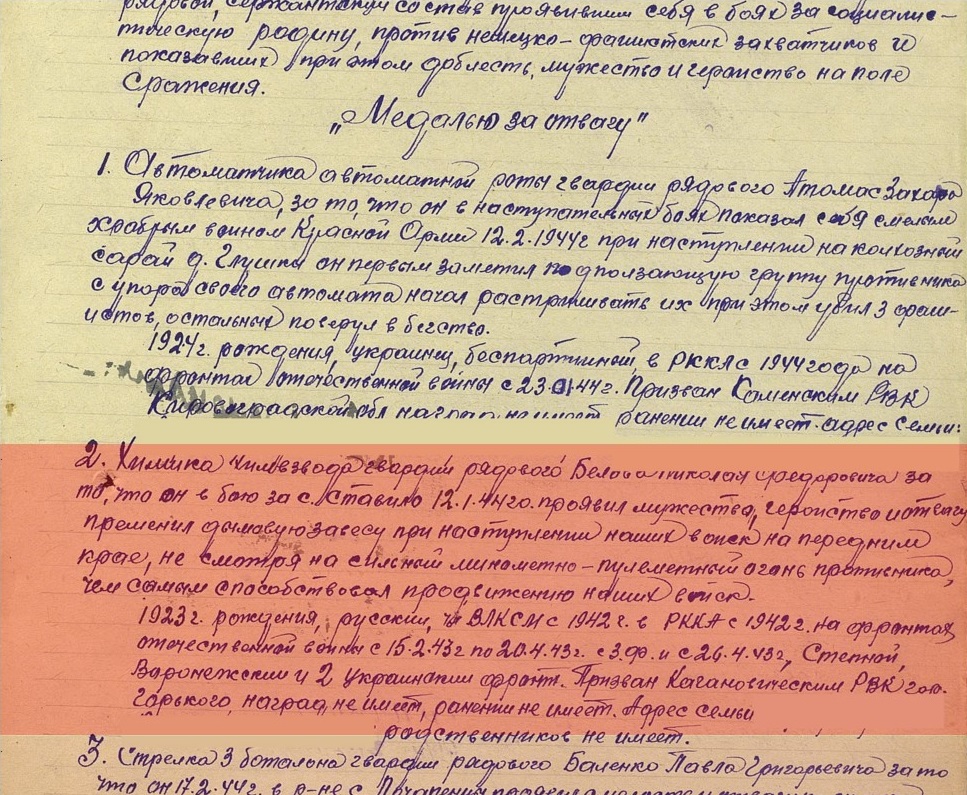 рядовой, сержантский состав проявившим себя в боях за социалис-
тическую родину, против немецко-фашистских захватчиков и
показавших при этом доблесть, мужество и геройство на поле
сражения.
„Медалью за отвагу"
1. Автоматчика автоматной роты гвардии рядового Атомас Захара
Яковлевича, за то, что он в наступательных боях показал себя смелым
храбрым воином Красной Орми 12.2.1944г при наступлении на колхозный
сарай д. Глушки он первым заметил подползающую группу противника
с упора своего автомата начал растрыливать их при этом убил 3 фаши-
истов, остальных повернул в бегство.
1924г. рождения, украинец, беспартийной, в РККА с 1944 года на
фронтах отечественной войны с 23.01.44г. Призван Каменским РВК
Кировоградской обл наград не имеет ранении не имеет. адрес семьи:
2. Химика химвзвода гвардии рядового Белова Николая Федоровича за
то, что он в бою за с. Ставило 12.1.44го. проявил мужество, геройство и отвагу
пременил дымовую завесу при наступлении наших войск на передним
крае, не смотря на сильный минометно-пулеметный огонь противника,
чем самым способствовал продвижению наших войск.
1923г. рождения, русский, чл ВЛКСМ с 1942г. в РККА с 1942г. на фронтах
отечественной войны с 15.2.43г по 20.4.43г. с З.ф. и с 26.4.43г, Степной,
Варонежский и 2 украинский фронт. Призван Кагановическим РВК гор.
Горького, наград не имеет, ранении не имеет. Адрес семьи
родственников не имеет.
3. Стрелка 3 баталона гвардии рядового Баленко Павла Григорьевича за то
что он 17.2.44г. в р-не с